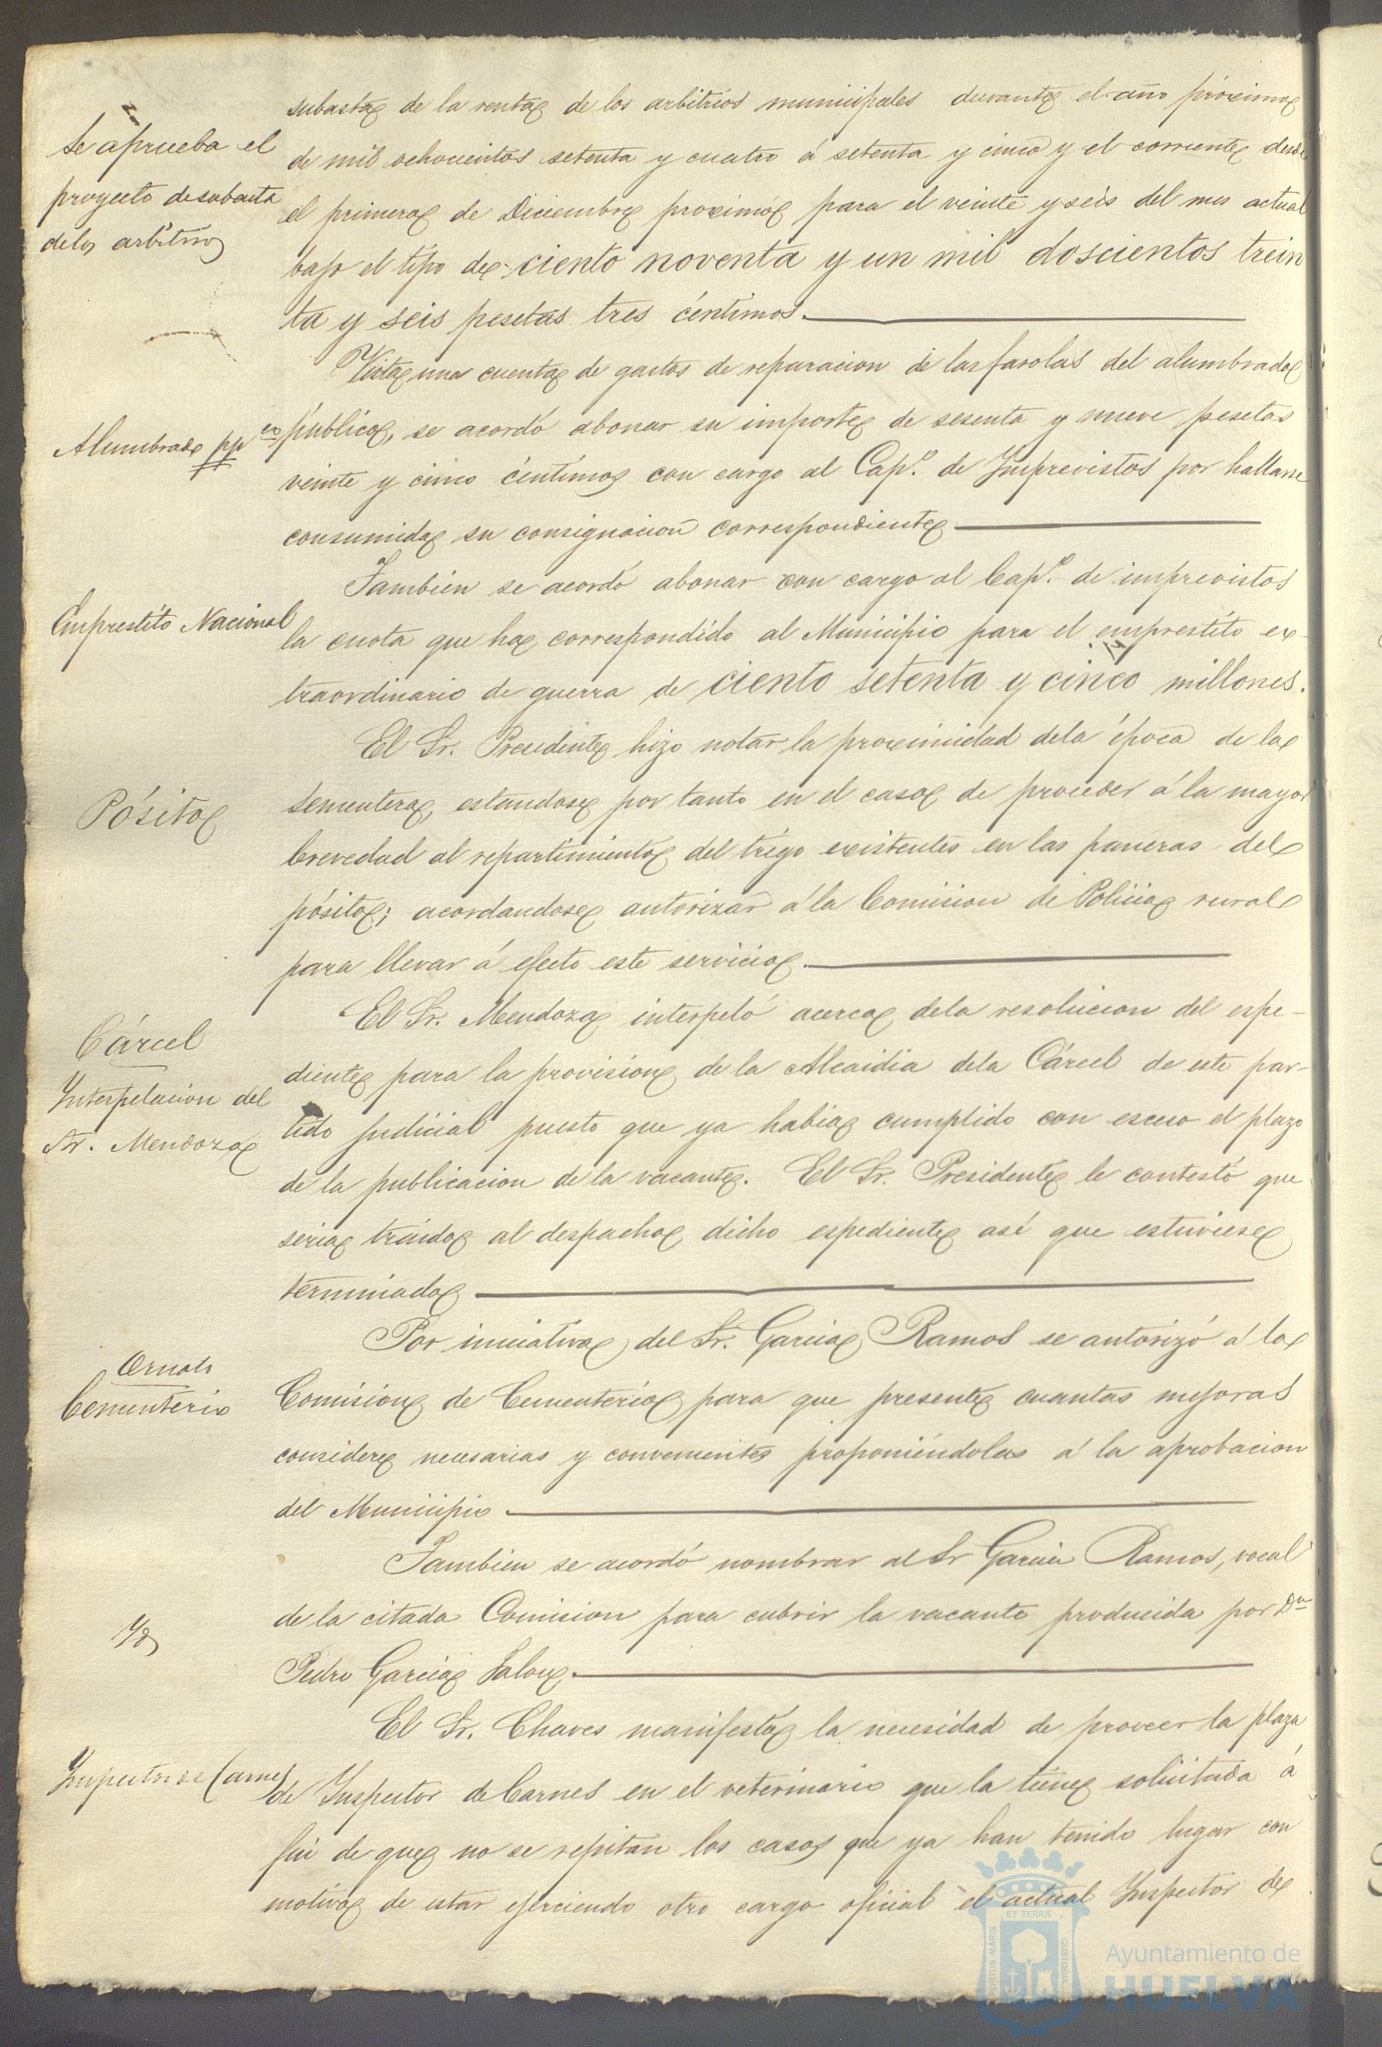 subasta de la renta de los arbitrios municipales durante el año próximo
Se aprueba el
proyecto de subasta
de los arbitrios
de mil ochocientos setenta y cuatro á setenta y cinco y el corriente desde
el primero de Diciembre proximo para el veinte y seis del mes actual
bajo el tipo de ciento noventa y un mil doscientos trein
ta y seis pesetas tres céntimos.
Vista una cuenta de gastos de reparacion de las farolas del alumbrado
Alumbrado ppco
público, se acordó abonar su importe de sesenta y nueve pesetas
veinte y cinco céntimos con cargo al Capº. de Imprevistos por hallarse
consumida su consignacion correspondiente
Tambien se acordó abonar con cargo al Capº. de imprevistos
Empréstito Nacional
la cuota que ha correspondido al Municipio para el empréstito ex-
traordinario de guerra de ciento setenta y cinco millones.
El Sr. Presidente hizo notar la proximidad de la época de la
Pósito
sementera, estandose por tanto en el caso de proceder á la mayor
brevedad al repartimiento del trigo existentes en las paneras del
pósito; acordandose autorizar á la Comision de Policia rural
para llevar á efecto este servicio.
El Sr. Mendoza interpeló acerca de la resolucion del espe-
Cárcel
Interpelacion del
Sr. Mendoza
diente para la provision de la Alcaidia de la Cárcel de este par-
tido judicial puesto que ya habia cumplido con esceso el plazo
de la publicacion de la vacante. El Sr. Presidente le contestó que
seria traido al despacho dicho espediente asi que estuviese
terminado
Por iniciativa del Sr. Garcia Ramos se autorizó á la
Ornato
Cementerio
Comision de Cementerio para que presente cuantas mejoras
considere necesarias y convenientes proponiéndolas á la aprobacion
del Municipio
Tambien se acordó nombrar al Sr Garcia Ramos, vocal
Yd
de la citada Comision para cubrir la vacante producida por Dn
Pedro Garcia Jalon.
El Sr. Chaves manifestó la necesidad de proveer la plaza
Inspector de Carnes
de Inspector de Carnes en el veterinario que la tiene solicitada á
fin de que no se repitan los casos que ya han tenido lugar con
motivo de estar ejerciendo otro cargo oficial el actual Inspector de
PORTUS MARIS ET TERRÆ CUSTODIA
Ayuntamiento de
HUELVA